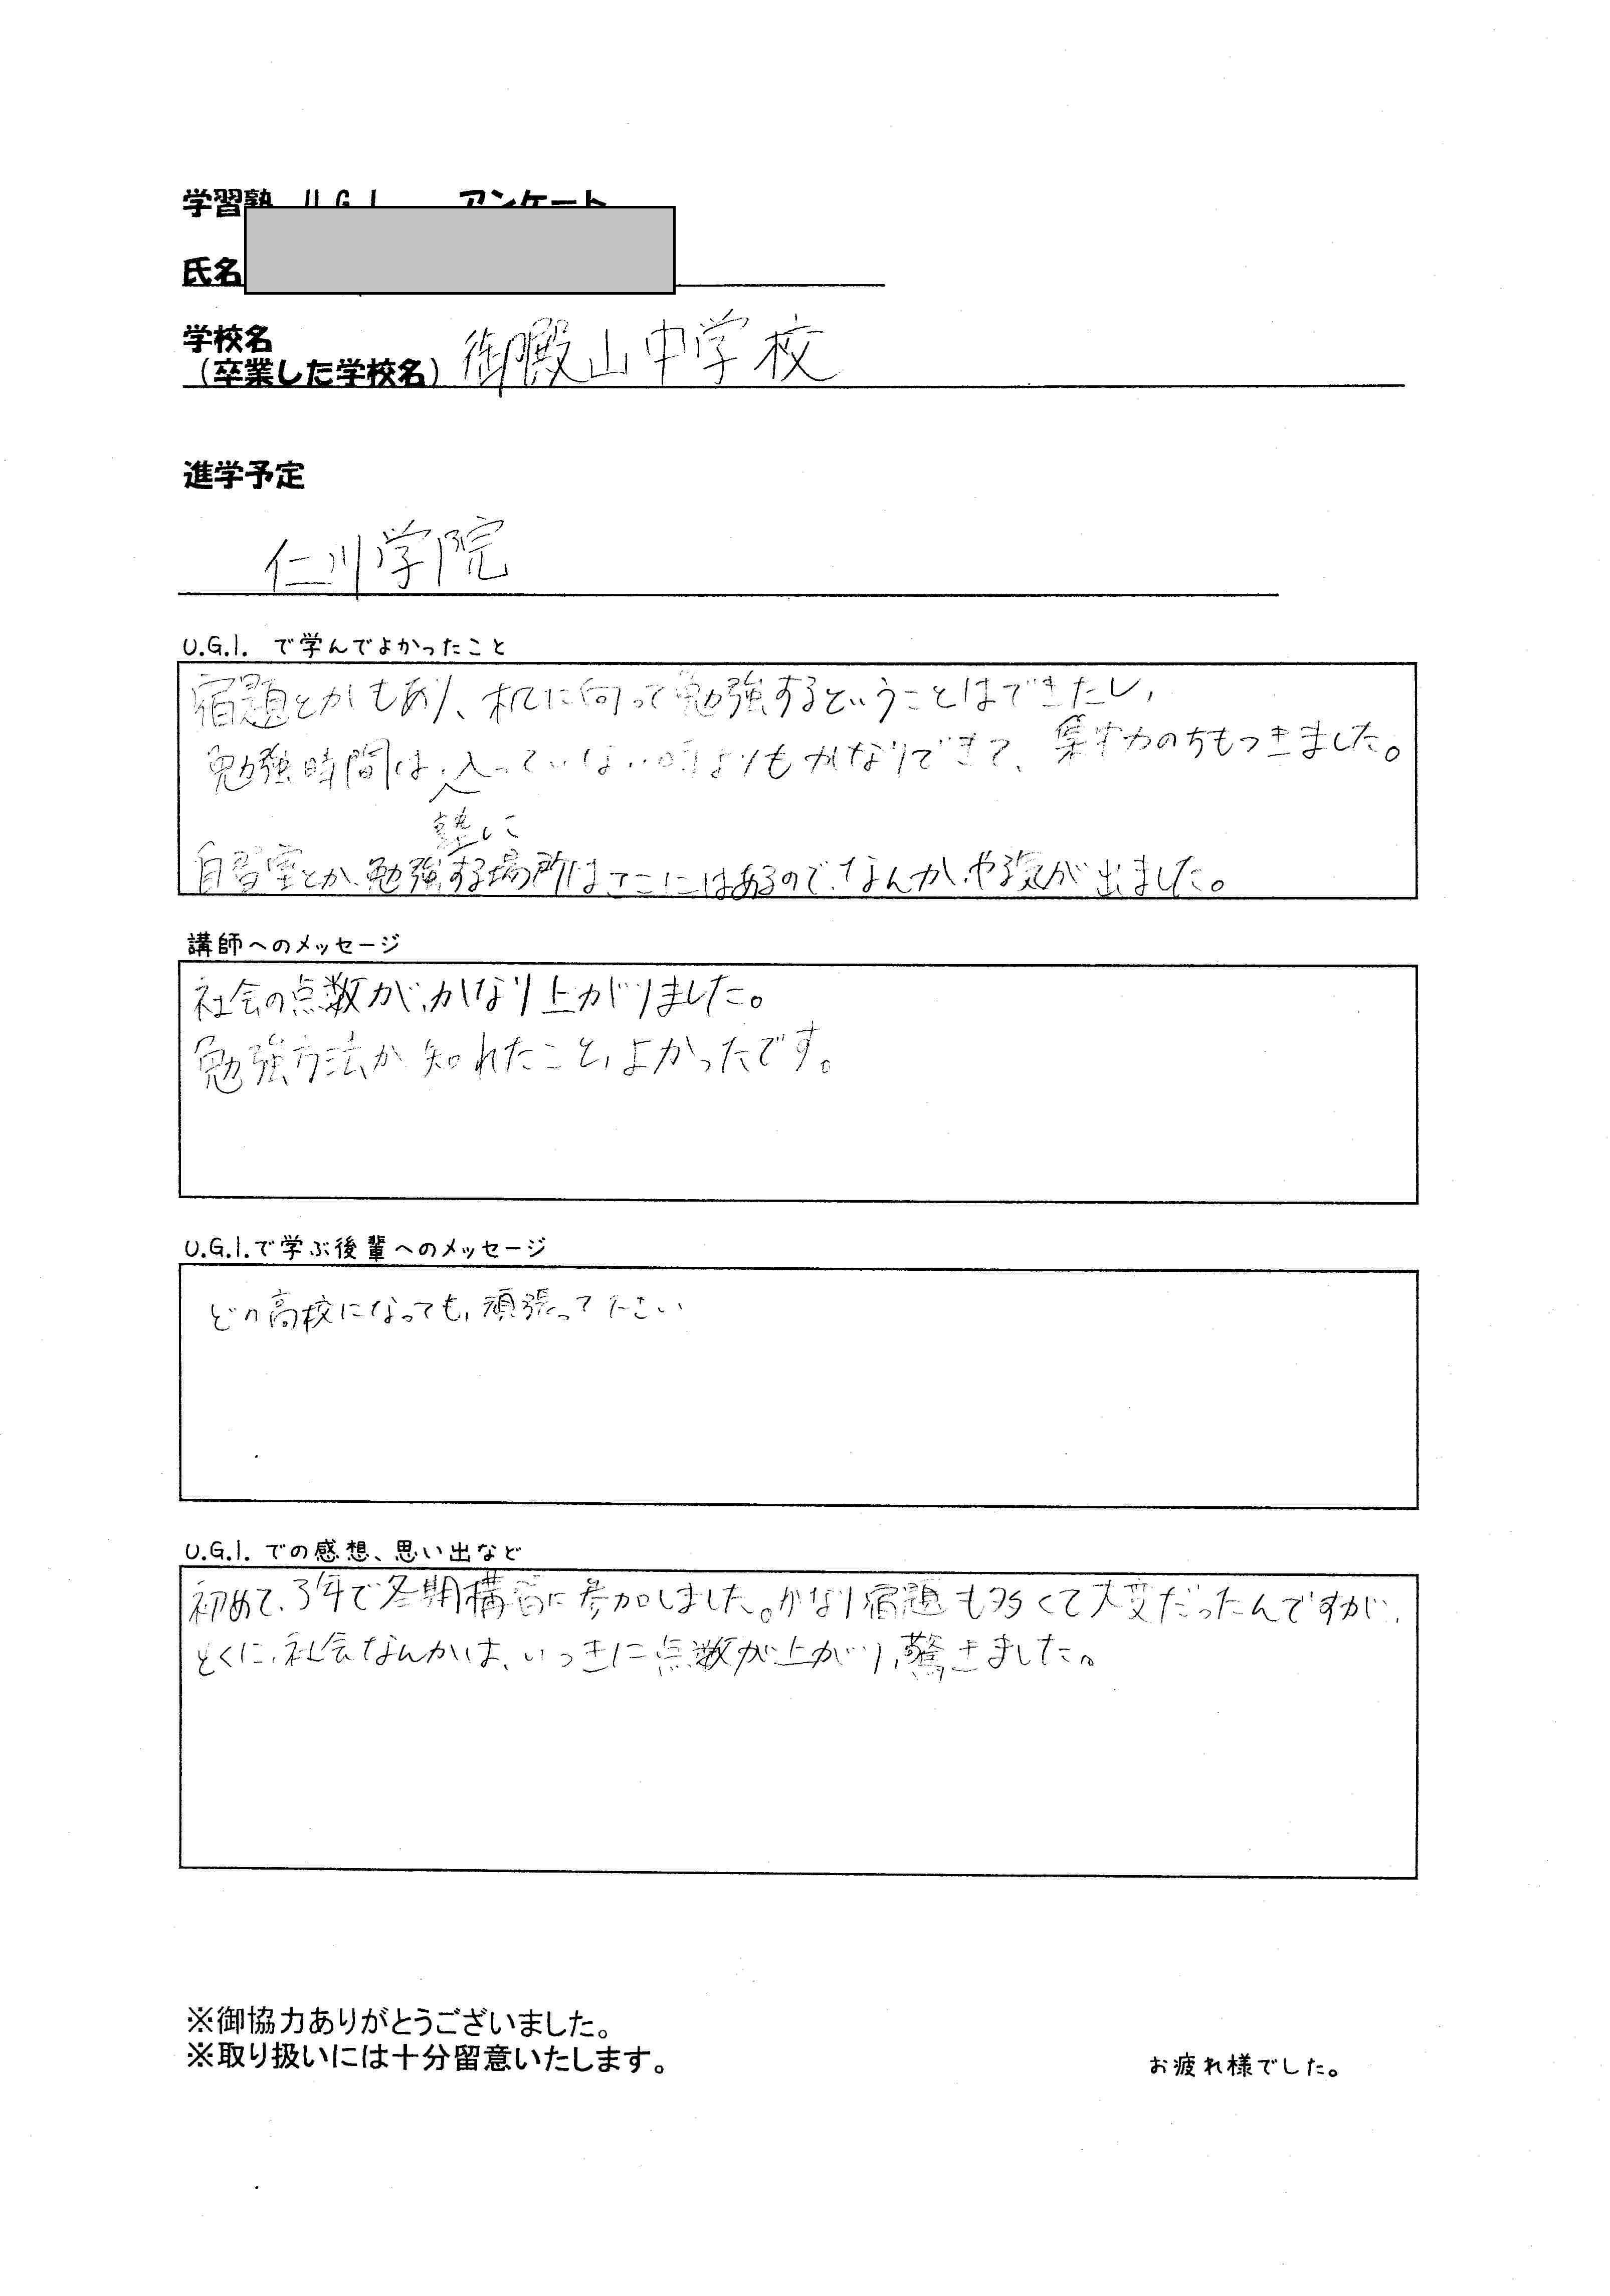 学習塾 U.G.I. アンケート
氏名
学校名
(卒業した学校名) 御殿山中学校
進学予定
仁川学院
U.G.I. で学んでよかったこと
宿題とかもあり、机に向って勉強するということはできたし、
勉強時間は、入っていない時よりもかなりできて、集中力のちもつきました。
塾に
自習室とか、勉強する場所はここにはあるので、なんか、やる気が出ました。
講師へのメッセージ
社会の点数が、かなり上がりました。
勉強方法が知れたこと、よかったです。
U.G.I.で学ぶ後輩へのメッセージ
どの高校になっても、頑張って下さい
U.G.I. での感想、思い出など
初めて、3年で冬期構習に参加しました。かなり宿題も多くて大変だったんですが、
とくに、社会なんかは、いっきに点数が上がり、驚きました。
※御協力ありがとうございました。
※取り扱いには十分留意いたします。
お疲れ様でした。